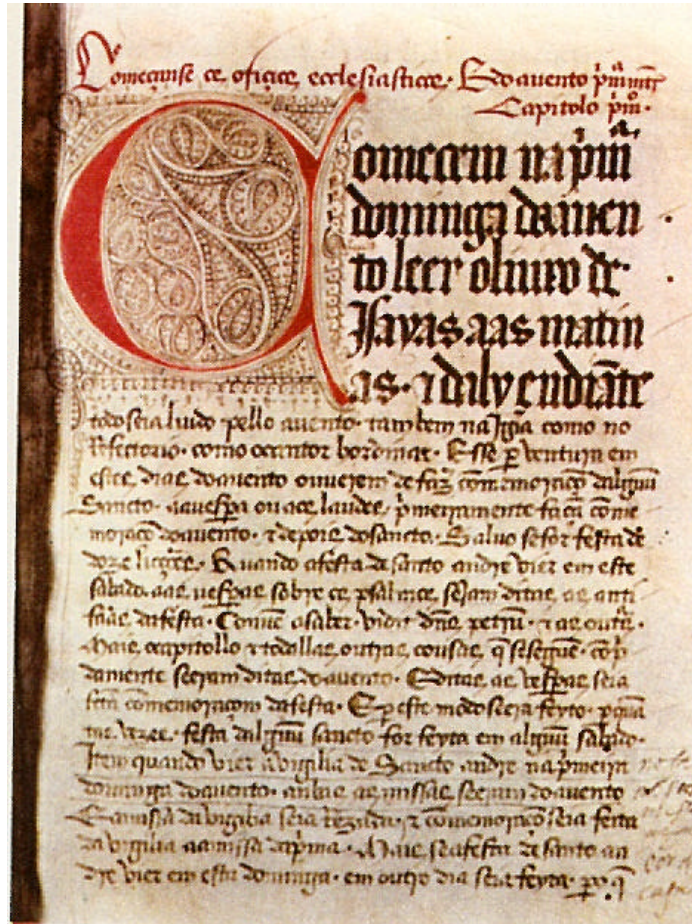 Começanse os ofiçios ecclesiasticos. E do auento p'meiramẽt
Capitolo p'mo.
Comecem na p'mra
dominga dauen
to leer oliuro de
Isayas aas matin
as. ⁊ daly endiãte
todo seia liudo pello auento. tambem na Igia como no
Refectorio. como o cantor hordinar. E sse p ventura em
estes dias do auento ouuerem de faz comemoraçõ dalguũ
Sancto. aa uespa ou aos laudes. p'meyramente façã come
moraçõ do auento. ⁊ depois do sancto. Saluo se for festa de
doze lições. Quando a festa de santo andre vier em este
sabado. aas uespas sobre os psalmos sejam ditas as anti
faãs da festa. Conuẽ a saber. vidit dñs petrũ. ⁊ as outs.
Mais o capitollo ⁊ todallas outras cousas q̃ se seguẽ. conp
damente seeram ditas do auento. E ditas as vespas seia
feita comemoraçom da festa. E p este modo seera feyto. p quan
tas vezes. festa dalguũ sancto for feyta em alguũ sabado.
Item quando vier a vigilia de Sancto andre na p'meira
dominga do auento. anbas as missas seeram do auento
E a missa da vigilia seia rezada. ⁊ comemoraçõ seia feita
da vigilia aa missa da p'ma. Mais se a festa de santo an
dre vier em esta dominga. em outro dia seia feyta. por q̃